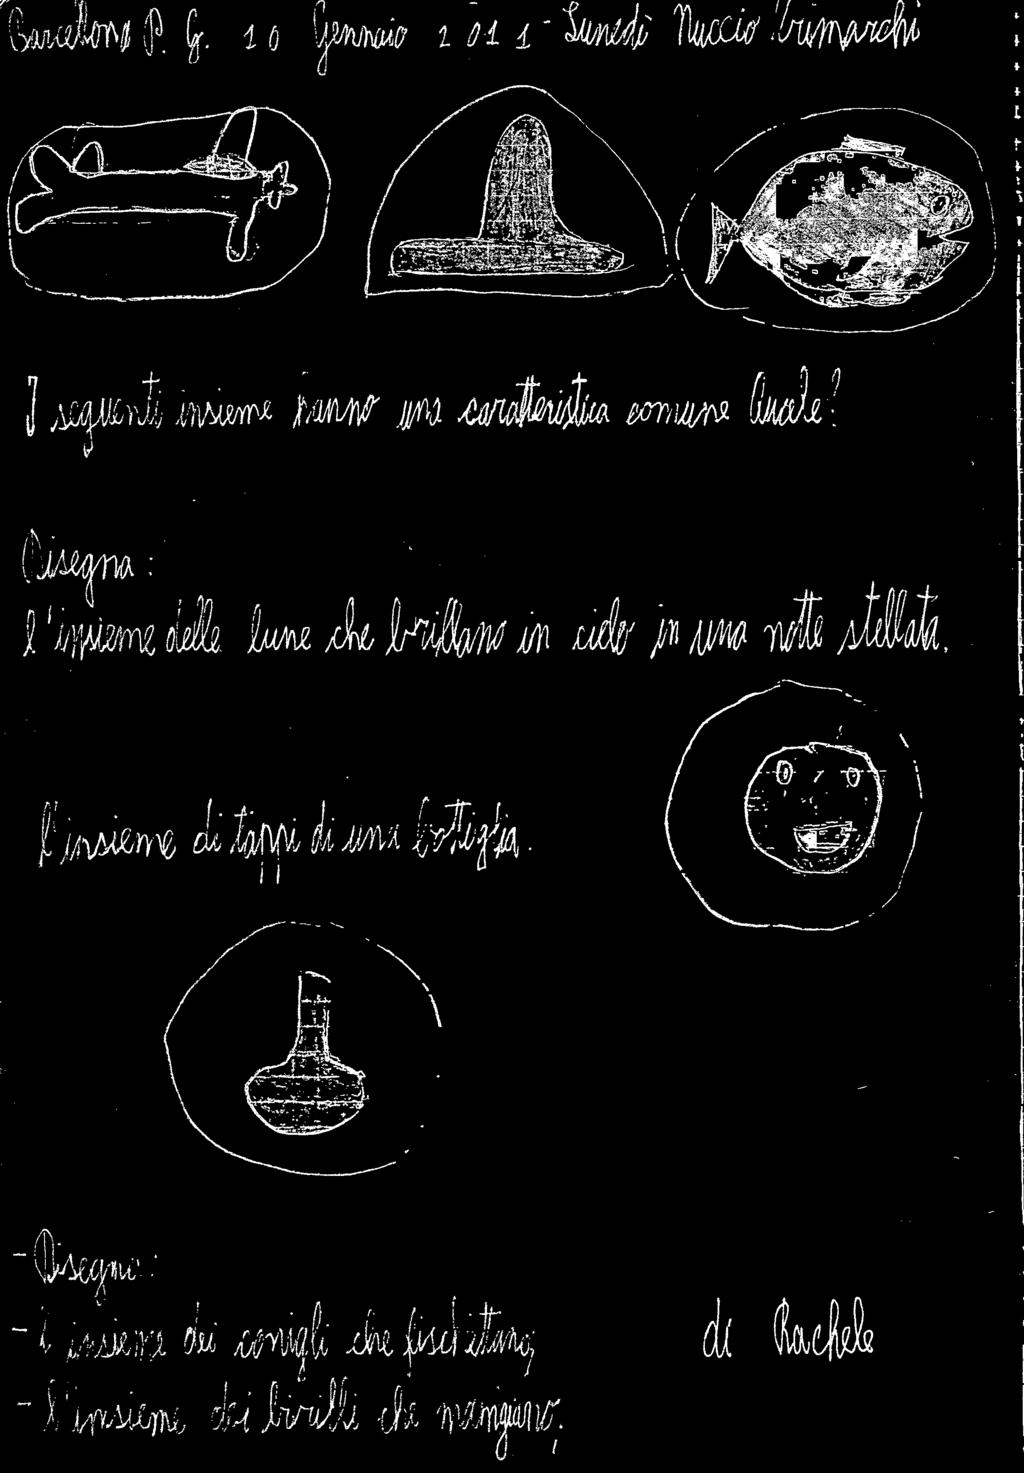 Barcellona P. G. 10 Gennaio 2011 - Lunedì Nuccio Trimarchi
I seguenti insieme hanno una caratteristica comune Quale?
Disegna:
l'insieme delle lune che brillano in cielo in una notte stellata.
l'insieme di tappi di una bottiglia.
- Disegna:
- l'insieme dei conigli che fischiettano,
di Rachele
- l'insieme dei birilli che mangiano.